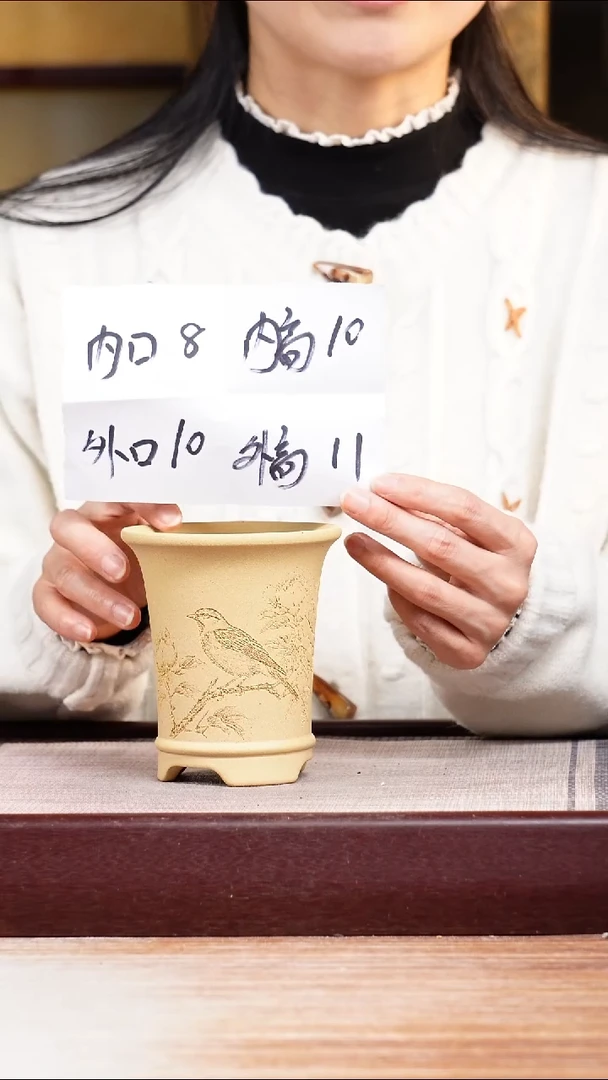 内口 8 内高 10
外口 10 外高 11